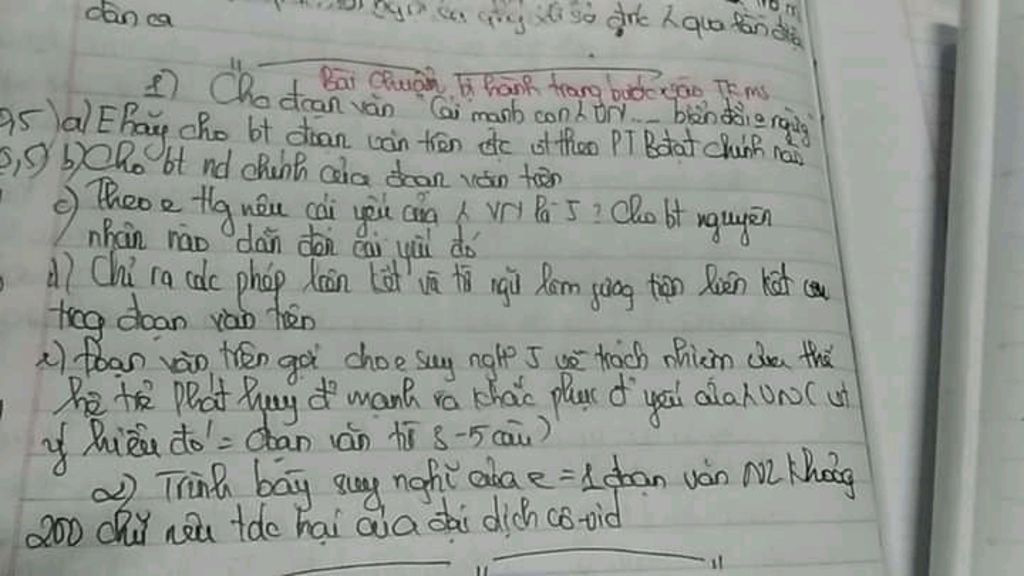 dân ca
qua
Bài Chuẩn bị hành trang bước vào TK ms
1) Cho đoạn văn "Cái mạnh con λ VN ... biến đổi
a) E hãy cho bt đoạn văn trên đc vt theo PT Bđạt chính nào
0,5) b) Cho bt nd chính của đoạn văn trên
c) Theo e ~~ nêu cái yếu của λ VN là J ? Cho bt nguyên
nhân nào dẫn đến cái yếu đó
d) Chỉ ra các phép liên kết và từ ngữ làm phương tiện liên kết câu
trog đoạn văn trên
e) Đoạn văn trên gợi cho e suy nghĩ J về trách nhiệm của thế
hệ trẻ phát huy đ' mạnh và khắc phục đ' yếu của λ VN ( vt
ý hiểu đó = đoạn văn từ 3-5 câu)
2) Trình bày suy nghĩ của e = 1 đoạn văn NL khoảng
200 chữ nêu tác hại của đại dịch cô-vid